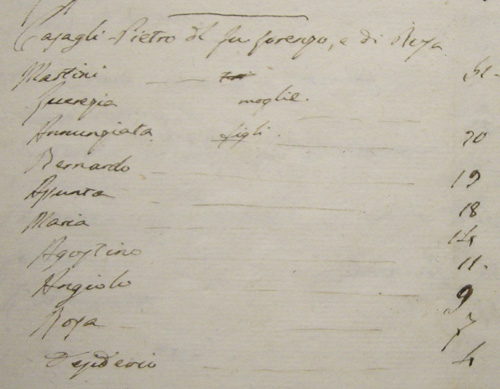 Casagli Pietro del fu Lorenzo, e di Rosa
Martini
moglie.
Annunziata figli. 20
Bernardo 19
Assunta 18
Maria 14
Agostino 11
Angiolo 9
Rosa 7
Desiderio 4